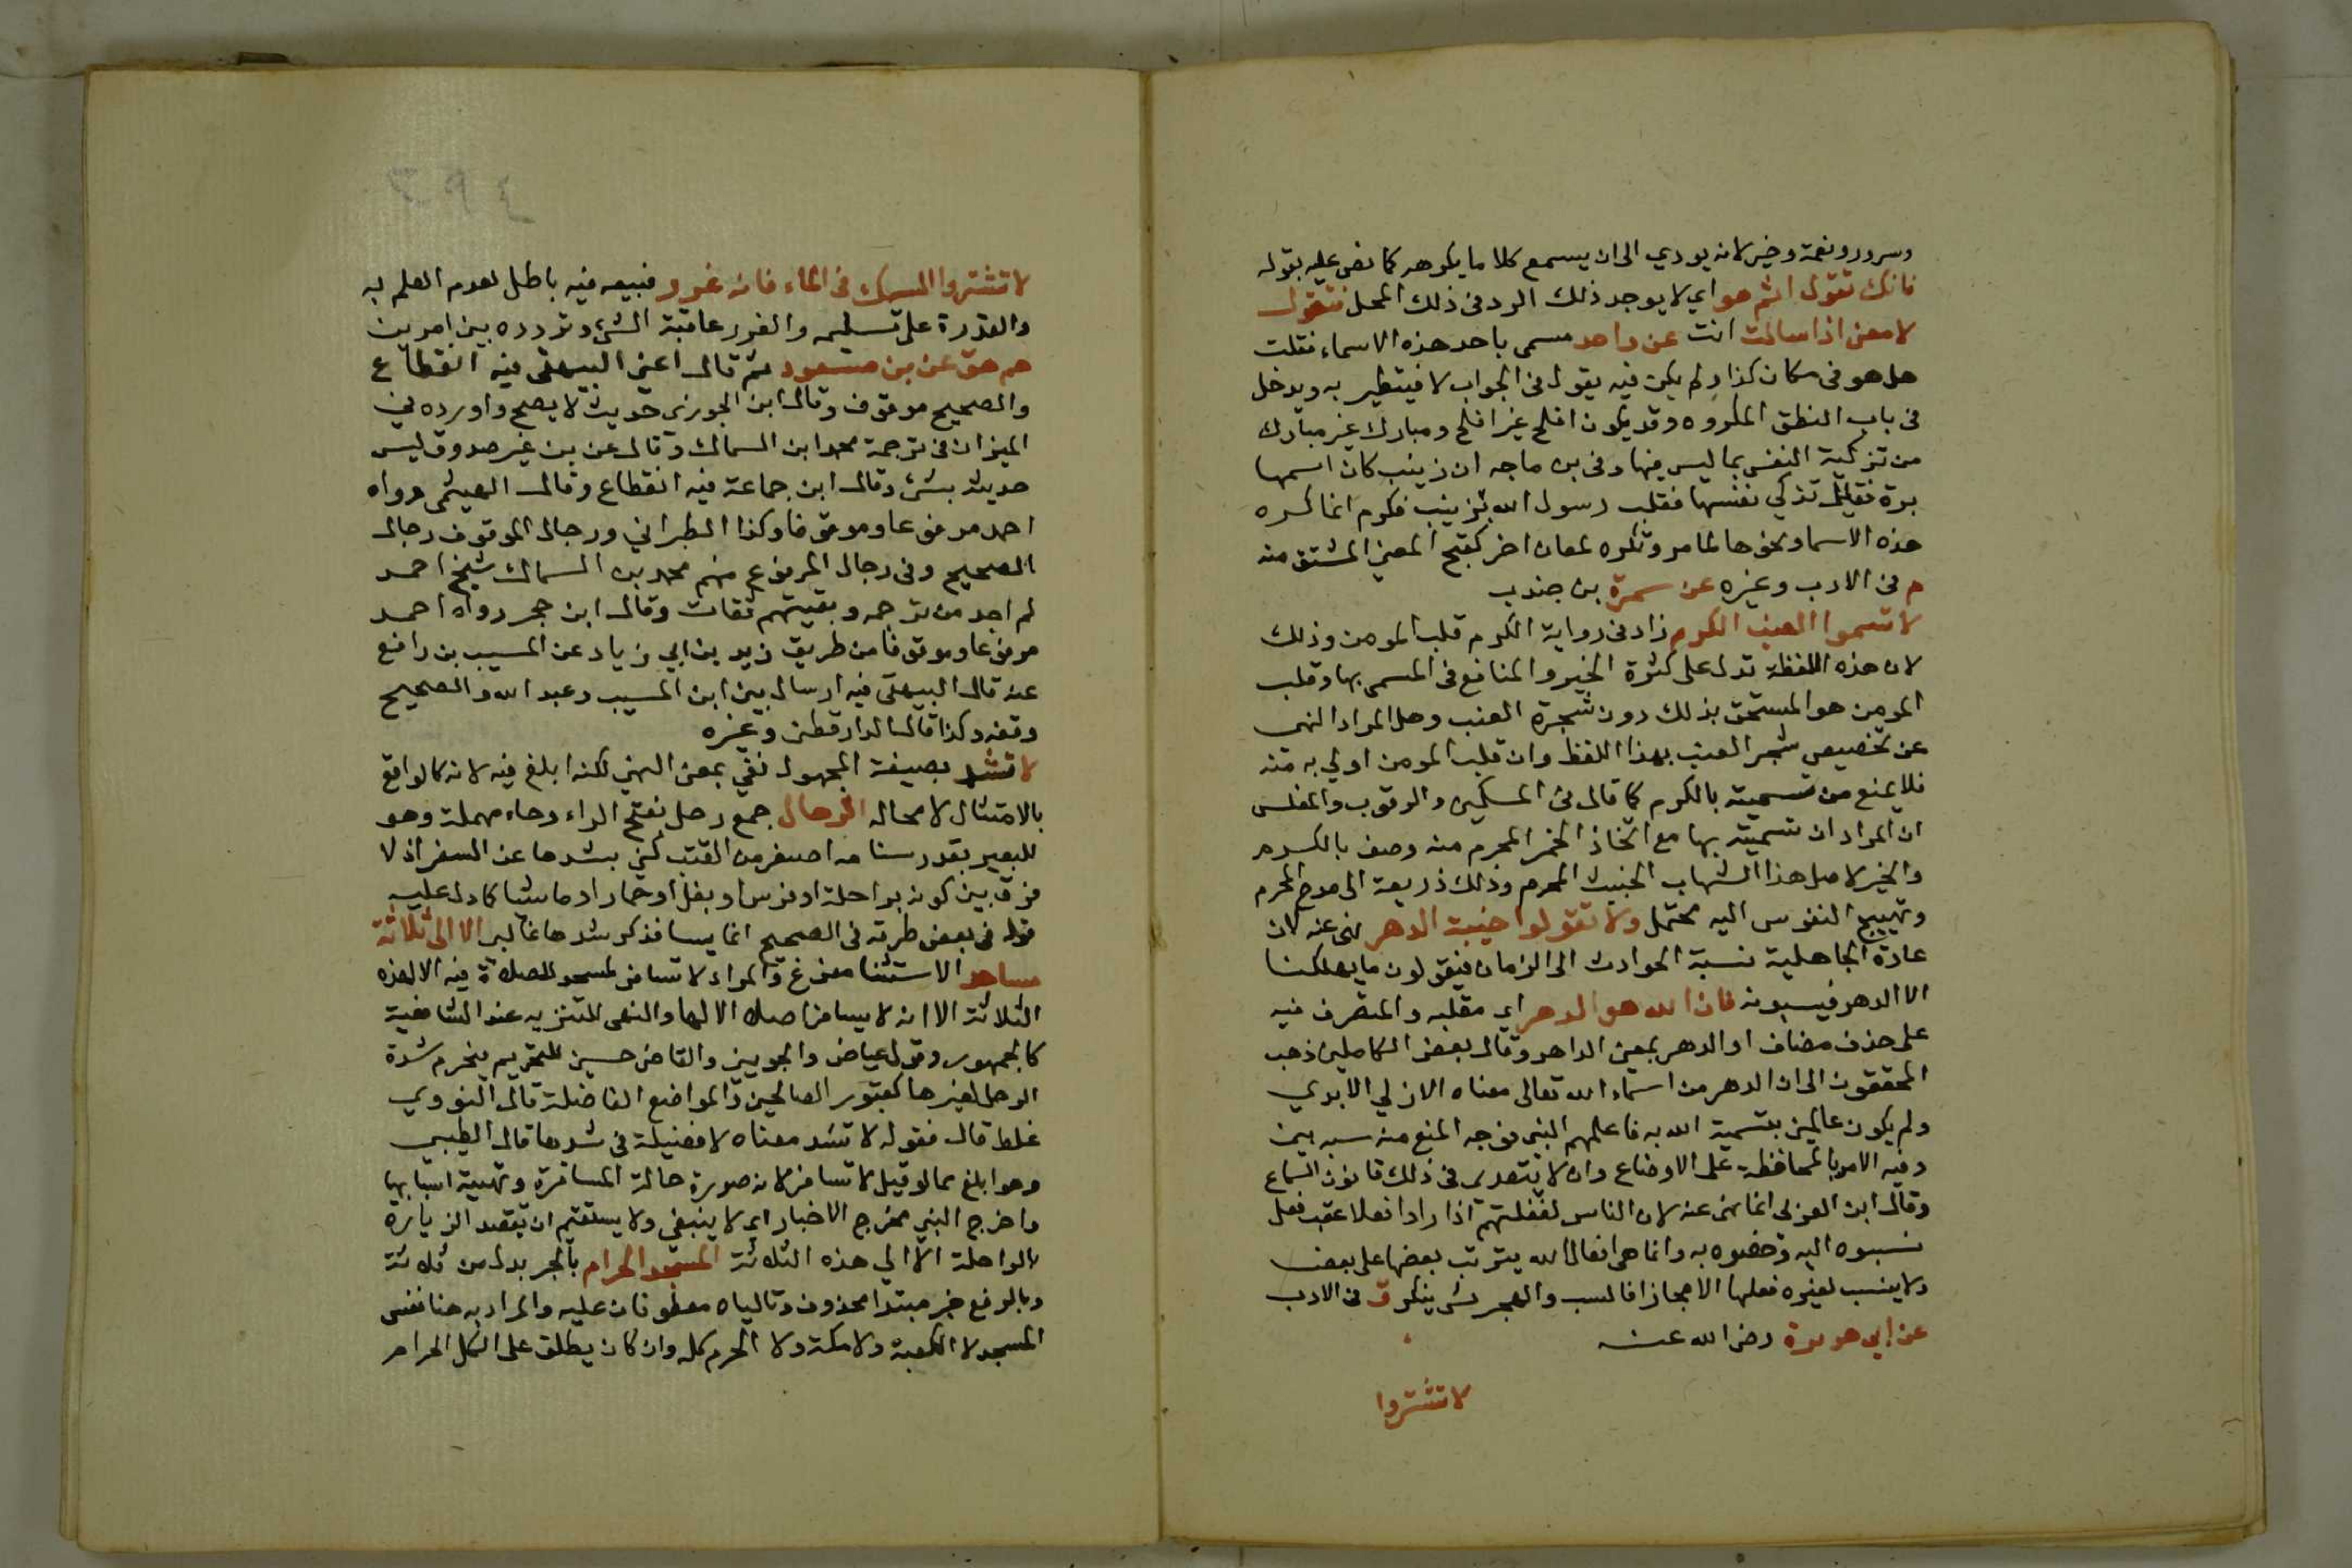 وسرور ونعمة وخير لانه يودي الى ان يسمع كلاما يكرهه كما نص عليه بقوله
فانك تقول اثم هو اي لا يوجد ذلك الرد في ذلك المحل فتقول
لا معنى اذا سالت انت عن واحد مسمى باحد هذه الاسماء فقلت
هل هو في مكان كذا ولم يكن فيه يقول في الجواب لا فيتطير به ويدخل
في باب النطق المكروه وقد يكون افلح غير افلح ومبارك غير مبارك
من تزكية النفس بما ليس فيها وفي بن ماجه ان زينب كان اسمها
برة فقيل تزكي نفسها فقلب رسول الله بزينب فكره انما كره
هذه الاسما ونحوها لما مر وتكره لمعان اخر كقبح المعنى المشتق منه
م في الادب وغيره عن سمرة بن جندب
لا تسموا العنب الكرم زاد في رواية الكرم قلب المومن وذلك
لان هذه اللفظة تدل على كثرة الخير والمنافع في المسمى بها وقلب
المومن هو المستحق بذلك دون شجرة العنب وهل المراد النهى
عن تخصيص شجر العنب بهذا اللفظ وان قلب المومن اولي به منه
فلا يمنع من تسميته بالكرم كما قال في المسكين والرقوب والمفلس
ان المراد ان تسميته بها مع اتخاذ الخمر المحرم منه وصف بالكرم
والخير لاصل هذا الشراب الخبيث المحرم وذلك ذريعة الى مدح المحرم
وتهييج النفوس اليه محتمل ولا تقولوا خيبة الدهر نهى عنه لان
عادة الجاهلية نسبة الحوادث الى الزمان فيقولون ما يهلكنا
الا الدهر فيسبونه فان الله هو الدهر اي مقلبه والمتصرف فيه
على حذف مضاف او الدهر بمعنى الداهر وقال بعض الكاملين ذهب
المحققون الى ان الدهر من اسماء الله تعالى معناه الازلي الابدي
ولم يكونو عالمين بتسمية الله به فاعلمهم النبي فوجه المنع منه سبه بين
وفيه الامر بالمحافظة على الاوضاع وان لا يتعدى في ذلك قانون السماع
وقال ابن العربي انما نهى عنه لان الناس لغفلتهم اذا راوا فعلا عقب فعل
نسبوه اليه وخصوه به وانما هي افعال الله يترتب بعضها على بعض
ولا ينسب لغيره فعلها الا مجازا فالسب والهجر شي ينكر ق في الادب
عن ابي هريرة رضي الله عنه
لا تشتروا
لا تشتروا السمك في الماء فانه غرر فبيعه فيه باطل لعدم العلم به
والقدرة على تسليمه والغرر عاقبة الشيء وتردده بين امرين
حم هق عن بن مسعود ثم قال اعني البيهقي فيه انقطاع
والصحيح موقوف وقال ابن الجوزي حديث لا يصح واورده في
الميزان في ترجمة محمد ابن السماك وقال عن بن غير صدوق ليس
حديثه بشيء وقال ابن جماعة فيه انقطاع وقال الهيثمي رواه
احمد مرفوعا وموقوفا وكذا الطبراني ورجال الموقوف رجال
الصحيح وفي رجال المرفوع منهم محمد بن السماك شيخ احمد
لم اجد من ترجمه وبقيتهم ثقات وقال ابن حجر رواه احمد
مرفوعا وموقوفا من طريق زيد بن ابي زياد عن المسيب بن رافع
عنه قال البيهقي فيه ارسال بين ابن المسيب وعبد الله والصحيح
وقفه وكذا قال الدارقطني وغيره
لا تشد بصيغة المجهول نفي بمعنى النهي لكنه ابلغ فيه لانه كالواقع
بالامتثال لا محاله الرحال جمع رحل بفتح الراء وحاء مهملة وهو
للبعير بقدر سنامه اصغر من القتب كني بشدها عن السفر اذ لا
فرق بين كونه براحلة او فرس او بغل او حمار او ماشيا كما دل عليه
قوله في بعض طرقه في الصحيح انما يسافر فذكر شدها غالبي الا الى ثلاثة
مساجد الاستثنا مفرغ والمراد لا تسافر لمسجد للصلاة فيه الا لهذه
الثلاثة الا انه لا يسافر اصلا الا لها والنهي للتنزيه عند الشافعية
كالجمهور وقول عياض والجويني والقاضي حسين للتحريم فيحرم شدة
الرحل لغيرها كقبور الصالحين والمواضع الفاضلة قال النووي
غلط قال فقوله لا تشد معناه لا فضيلة في شدها قال الطيبي
وهو ابلغ مما لو قيل لا تسافر لانه صورة حالة المسافرة وتهيئة اسبابها
واخرج النهي مخرج الاخبار اي لا ينبغي ولا يستقيم ان تقصد الزيارة
بالراحلة الا الي هذه الثلاثة المسجد الحرام بالجر بدل من ثلاثة
وبالرفع خبر مبتدا محذوف وتالياه معطوفان عليه والمراد به هنا نفس
المسجد لا الكعبة ولا مكة ولا الحرم كله وان كان يطلق على الكل الحرام